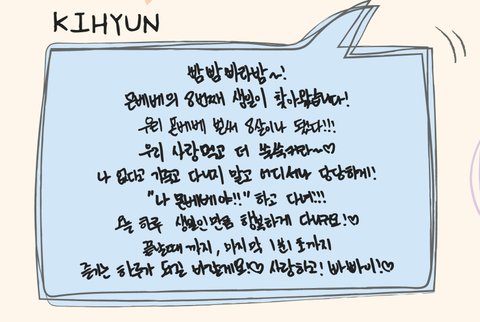 KIHYUN
빰밤빠라밤~!
몬베베의 8번째 생일이 찾아왔습니다!
우리 몬베베 벌써 8살이나 됐다!!!
우리 사랑먹고 더 쑥쑥자라~♡
나 없다고 기죽고 다니지 말고 어디서나 당당하게!
"나 몬베베야!!" 하고 다녀!!!
오늘 하루 생일인만큼 행복하게 다녀요!♡
끝날때까지, 마지막 1분 1초까지
즐기는 하루가 되길 바랄게요!♡ 사랑하고! 빠빠이!♡